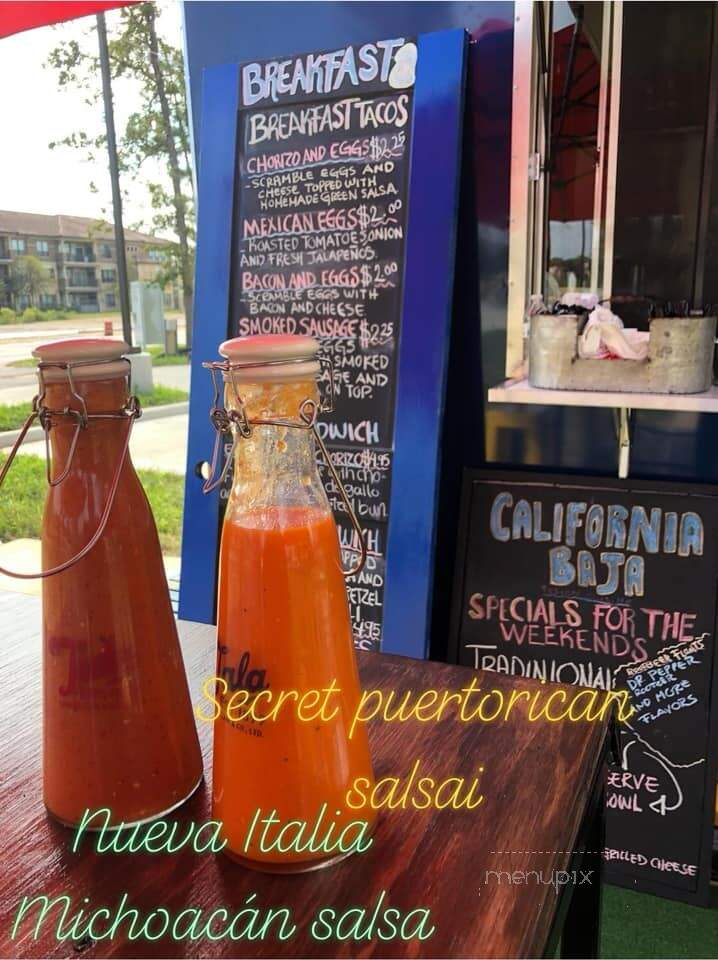 BREAKFAST
BREAKFAST TACOS
CHORIZO AND EGGS $2.25
-SCRAMBLE EGGS AND
CHEESE TOPPED WITH
HOMEMADE GREEN SALSA
MEXICAN EGGS $2.00
-ROASTED TOMATOES ONION
AND FRESH JALAPEÑOS.
BACON AND EGGS $2.00
-SCRAMBLE EGGS WITH
BACON AND CHEESE
SMOKED SAUSAGE $2.25
EGGS
SMOKED
AND
ON TOP.
4.95
gallo
bun
AND
4.95
CALIFORNIA
BAJA
SPECIALS FOR THE
WEEKENDS
TRADINIONAL
ROOTBEER FLOATS
DR PEPPER
AND MORE
FLAVORS
GRILLED CHEESE
Secret puertorican
salsai
Nueva Italia
Michoacán salsa
menupix